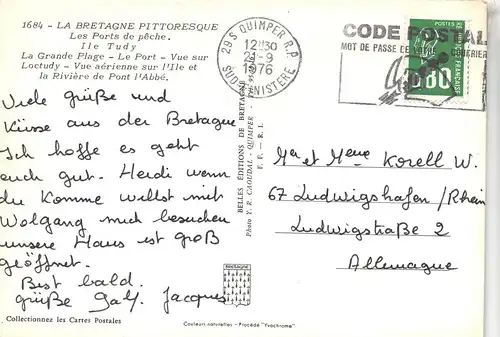 1684 - LA BRETAGNE PITTORESQUE
Les Ports de pêche.
Ile Tudy
La Grande Plage - Le Port - Vue sur
Loctudy - Vue aérienne sur l'Ile et
la Rivière de Pont l'Abbé.
Viele grüße und
Küsse aus der Bretagne
Ich hoffe es geht
euch gut. Heidi wenn
du Komme willst mit
Wolgang mich besuchen
unsere Haus ist groß
geöffnet.
Bist bald.
grüße Jacques
Collectionnez les Cartes Postales
29 S QUIMPER R.P.
12H30
-9
1976
SUD FINISTERE
CODE POSTAL
MOT DE PASSE DE COURRIER
0,80
FRANÇAISE
BELLES EDITIONS DE BRETAGNE
Photo Y. R. CAOUDAL - QUIMPER
F. F. - R. L.
BRETAGNE
Mr et Mme Korell W.
67 Ludwigshafen/Rhein
Ludwigstraße 2
Allemagne
Couleurs naturelles - Procédé "Yvochrome"